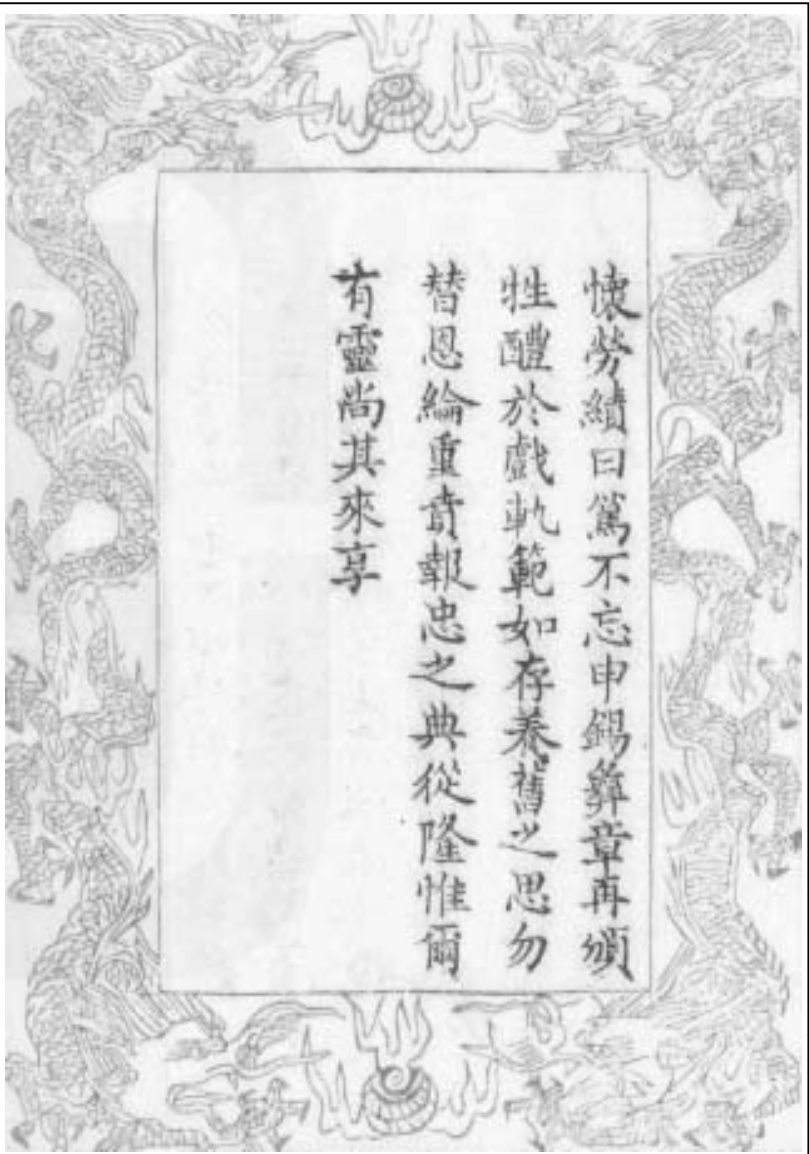 懷勞績曰篤不忘申錫彝章再頒
牲醴於戲軌範如存養舊之思勿
替恩綸重賁報忠之典從隆惟爾
有靈尚其來享